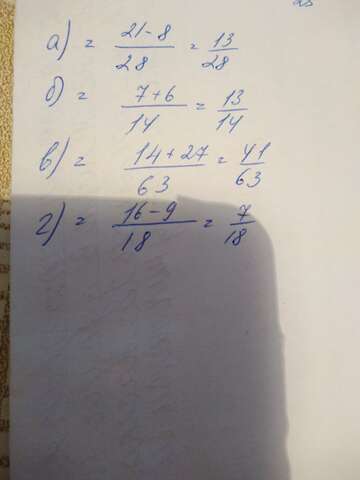 а) = 21-8/28 = 13/28
б) = 7+6/14 = 13/14
в) = 14+27/63 = 41/63
г) = 16-9/18 = 7/18